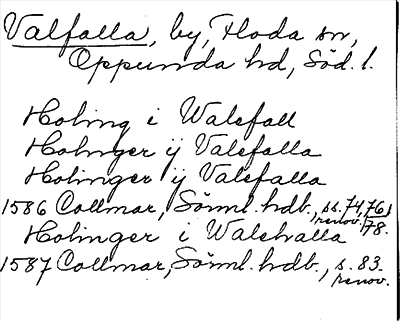 Valfalla, by, Floda sn,
Oppunda hd, Söd. l.
Holing i Walsfall
Holinger ÿ Valsfalla
Holinger ÿ Valsfalla
1586 Collmar, Sörml. hdb., ss. 74, 76,
renov. 78.
Holinger i Walshalla
1587 Collmar, Sörml. hdb., s. 83.
renov.